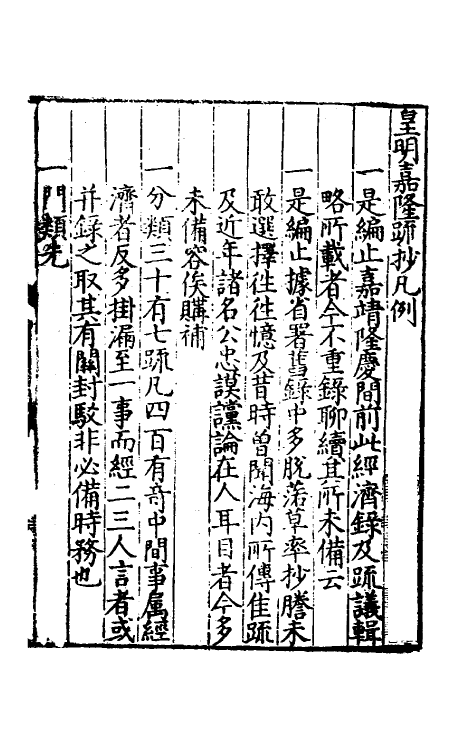 皇明嘉隆疏抄凡例
一是編止嘉靖隆慶間前此經濟錄及疏議輯
略所載者今不重錄聊續其所未備云
一是編止據省署舊錄中多脫落草率抄謄未
敢選擇徃徃憶及昔時曾聞海内所傳佳疏
及近年諸名公忠謨讜論在人耳目者今多
未備容俟購補
一分類三十有七疏凡四百有竒中間事属經
濟者反多掛漏至一事而經二三人言者或
并錄之取其有關封駁非必備時務也
一門類先